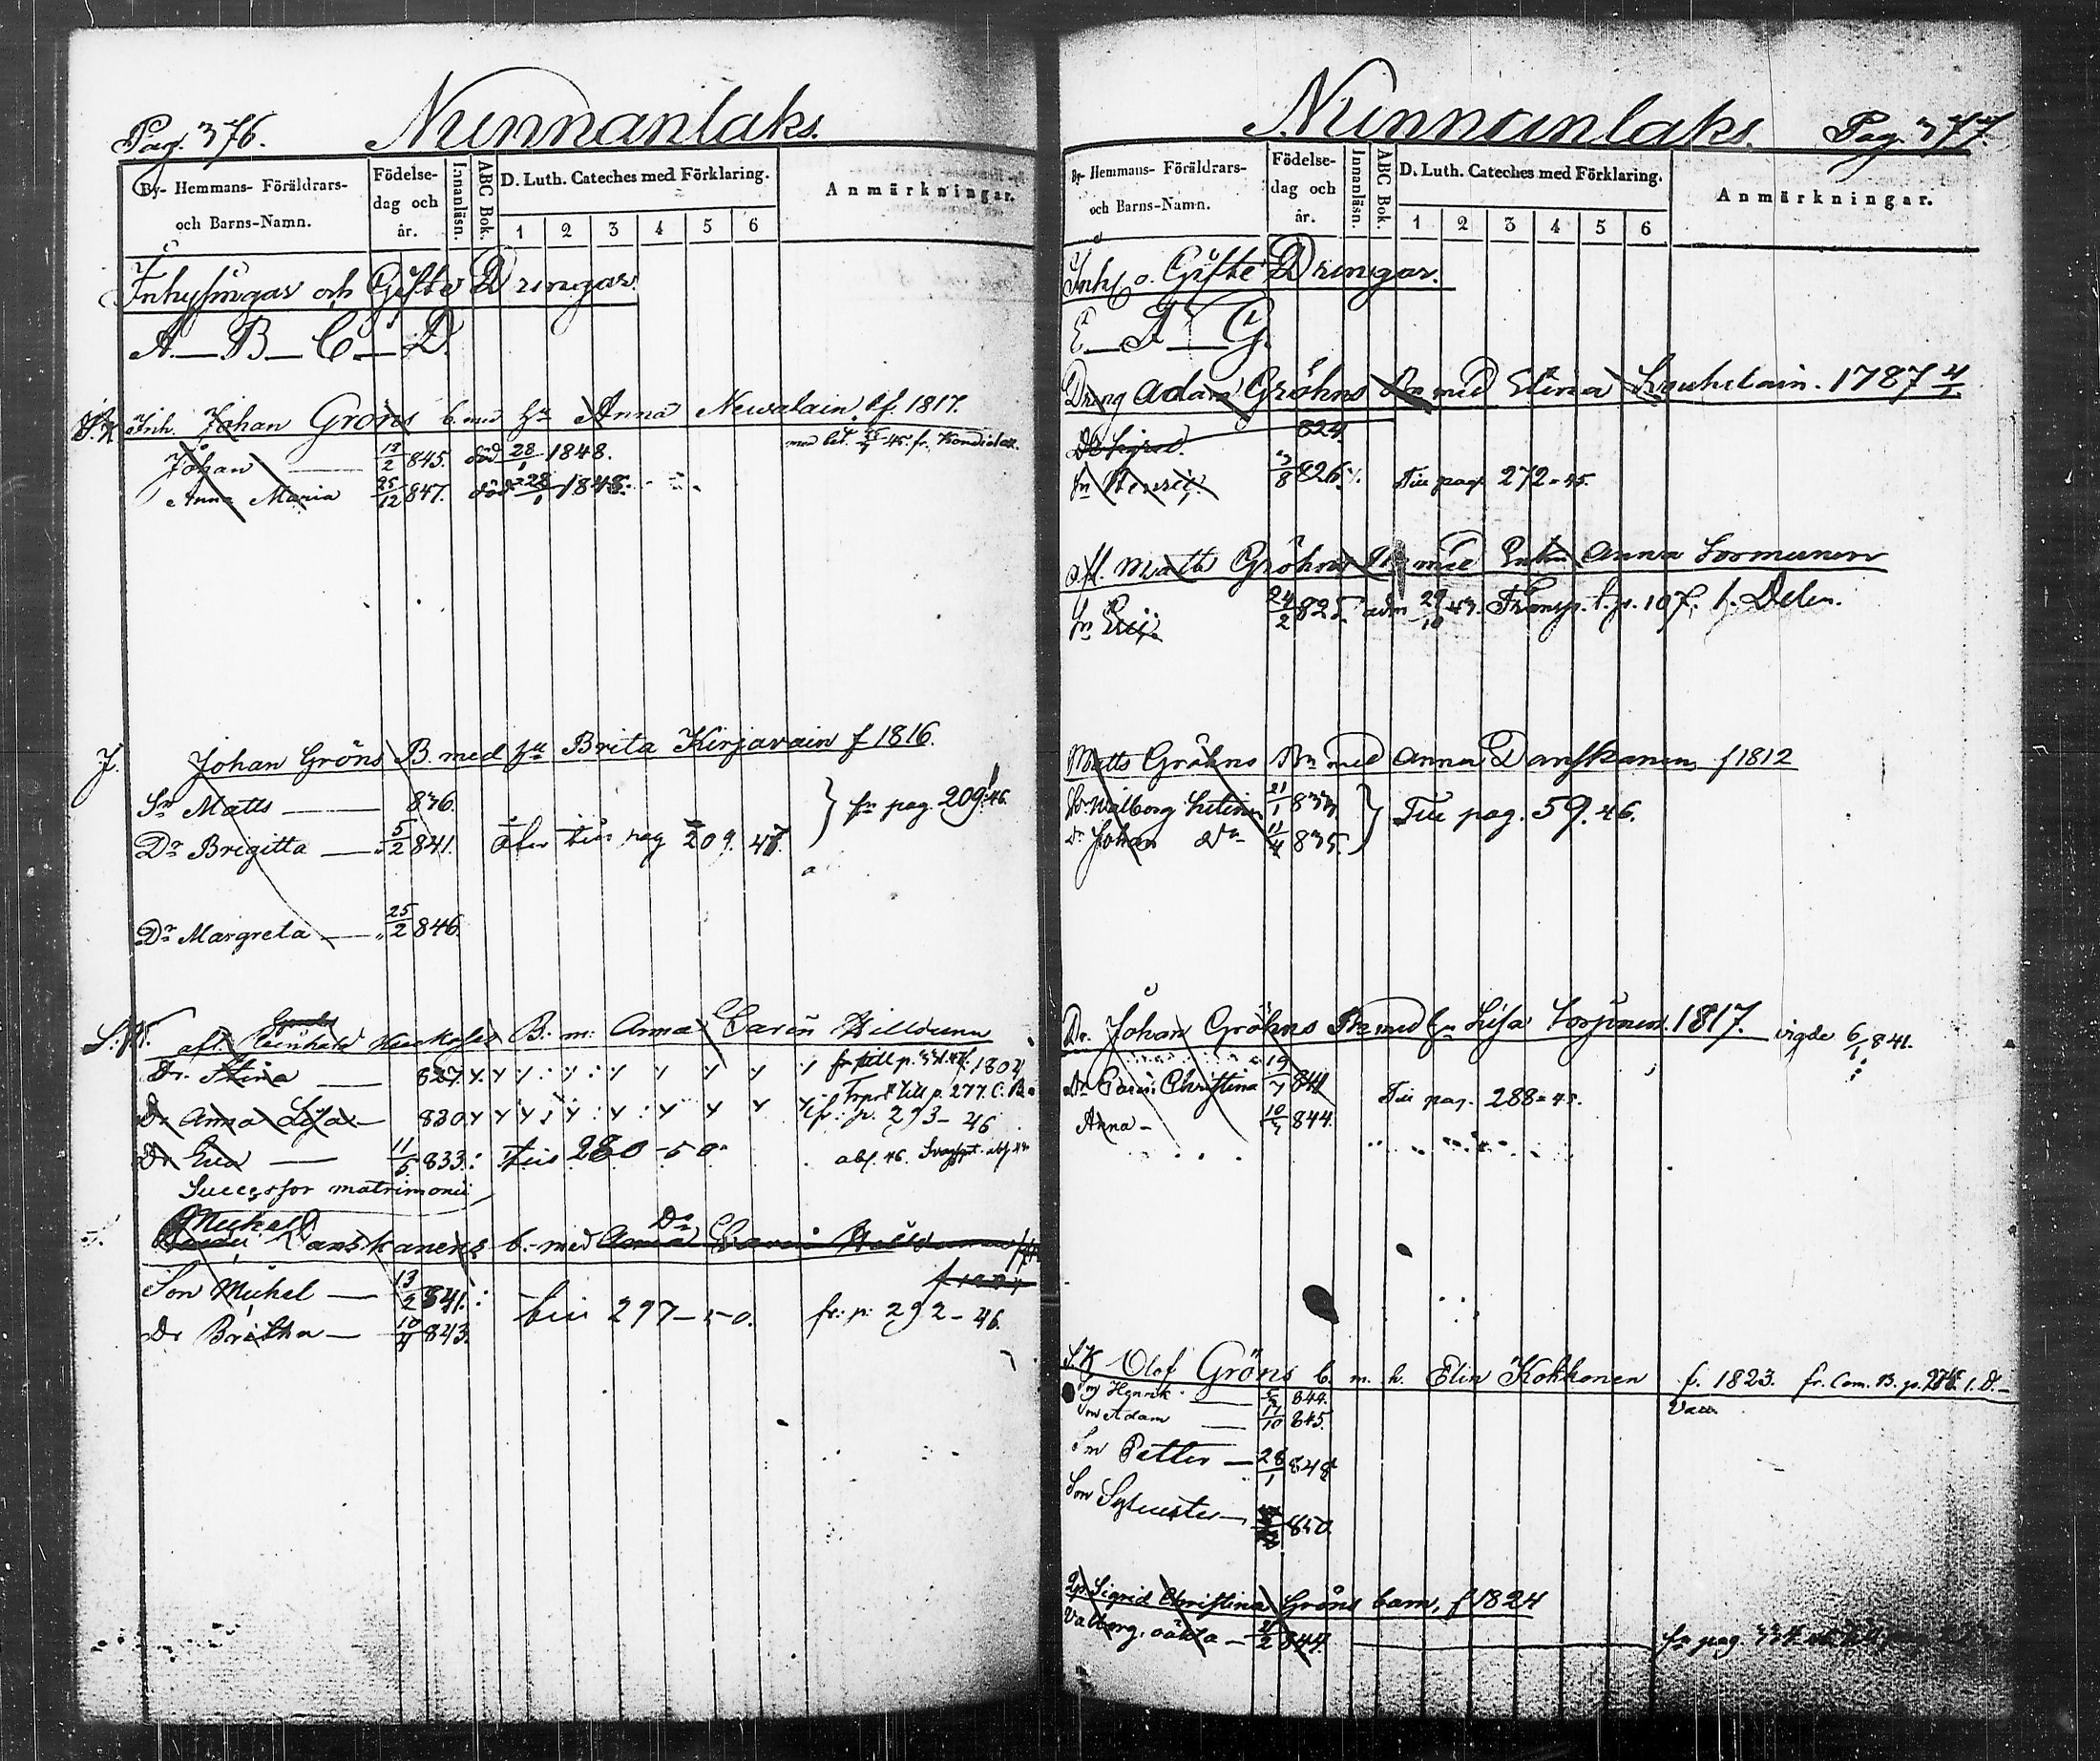 Pag. 376. Nunnanlaks.
By- Hemmans- Föräldrars- och Barns-Namn. Födelse- dag och år. Innanläsn. ABC Bok. D. Luth. Cateches med Förklaring. 1 2 3 4 5 6 Anmärkningar.
Inhysingar och Gifte Drängar.
A. — B — C — D.
Inh. Johan Gröns b. med hu Anna Newalain, f. 1817.
Johan — 845. död 28/1 1848.
Anna Maria 25/12 847. död 28/1 1848.
J. Johan Gröns B. med hu Brita Kirjavain f 1816.
Sn Matts — 836. fr pag. 209. 46.
Dr Brigitta — 5/2 841. åter till pag 209. 48.
Dr Margreta — 25/2 846.
afl. Reinhold B. m: Anna Carin
Dr. Stina — 827.
Dr Anna Lisa — 830 fr: p. 293 - 46
Dr Eva — 11/5 833: 280 - 50
Successor matrimonii
Michel Danskanens b. med
Son Michel — 13/2 841.: 297 - 50. fr: p: 292 - 46.
Dr Britha — 10/4 843.
Nunnanlaks. Pag. 377.
By- Hemmans- Föräldrars- och Barns-Namn. Födelse- dag och år. Innanläsn. ABC Bok. D. Luth. Cateches med Förklaring. 1 2 3 4 5 6 Anmärkningar.
Inh. o. Gifte Drängar.
E — F — G.
Dräng Adam Gröhns Bn med Elina 1787 4/1
824
Sn Henric 3/8 826. Till pag. 272 = 45.
afl. Matts Gröhns Bn med Enkan Anna Sormunen
Sn Eric 24/2 825. adm 29/10 43. Transp. t. p. 107, 1. Delen.
Matts Gröhns Bn med Anna Danskanen, f 1812
Dr Walborg 21/1 833.
Johan 11/4 835. Till pag. 59. 46.
Dr. Johan Gröhns Bn med hu Lisa Torpinen 1817. vigde 6/1 841.
Dr Carin Christina 19/7 841 Till pag. 288 = 45.
Anna - 844.
Olof Gröns b. m. h. Elin Kokkonen f. 1823. fr. Com. B. p.
Son Henrik — 844. Vacc.
Son Adam — 17/10 845.
Son Petter — 28/1 848
Son Sylvester — 850.
Sigrid Christina Gröns barn, f 1824
Valborg, oäkta — 2 844. fr pag.